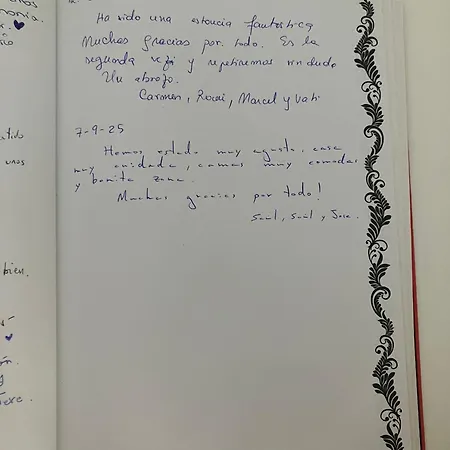 onia.
Ha sido una estancia fantástica
Muchas gracias por todo. Es la
segunda vez y repetiremos sin duda
Un abrazo.
Carmen, Marcel y
7-9-25
Hemos estado muy agusto, casa
muy cuidada, camas muy comodas
y bonita zona.
Muchas gracias por todo!
Saul, Saúl y Jose.
unos
bien.